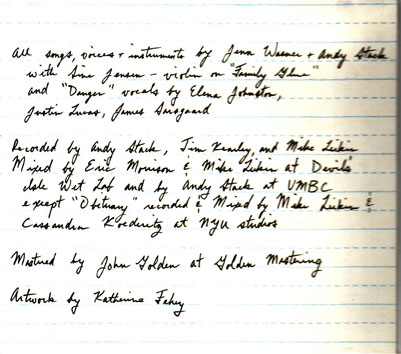 All songs, voices + instruments by Jenn Wasner + Andy Stack
with Sine Jensen - violin on "Family Glue"
and "Danger" vocals by Elena Johnston,
Justin Lucas, James Sarsgaard
Recorded by Andy Stack, Tim Kearley, and Mike Likin
Mixed by Eric Morrison & Mike Likin at Devil's
Isle Wet Lab and by Andy Stack at UMBC
except "Obituary" recorded & Mixed by Mike Likin &
Cassandra at NYU studios
Mastered by John Golden at Golden Mastering
Artwork by Katherine Fahey